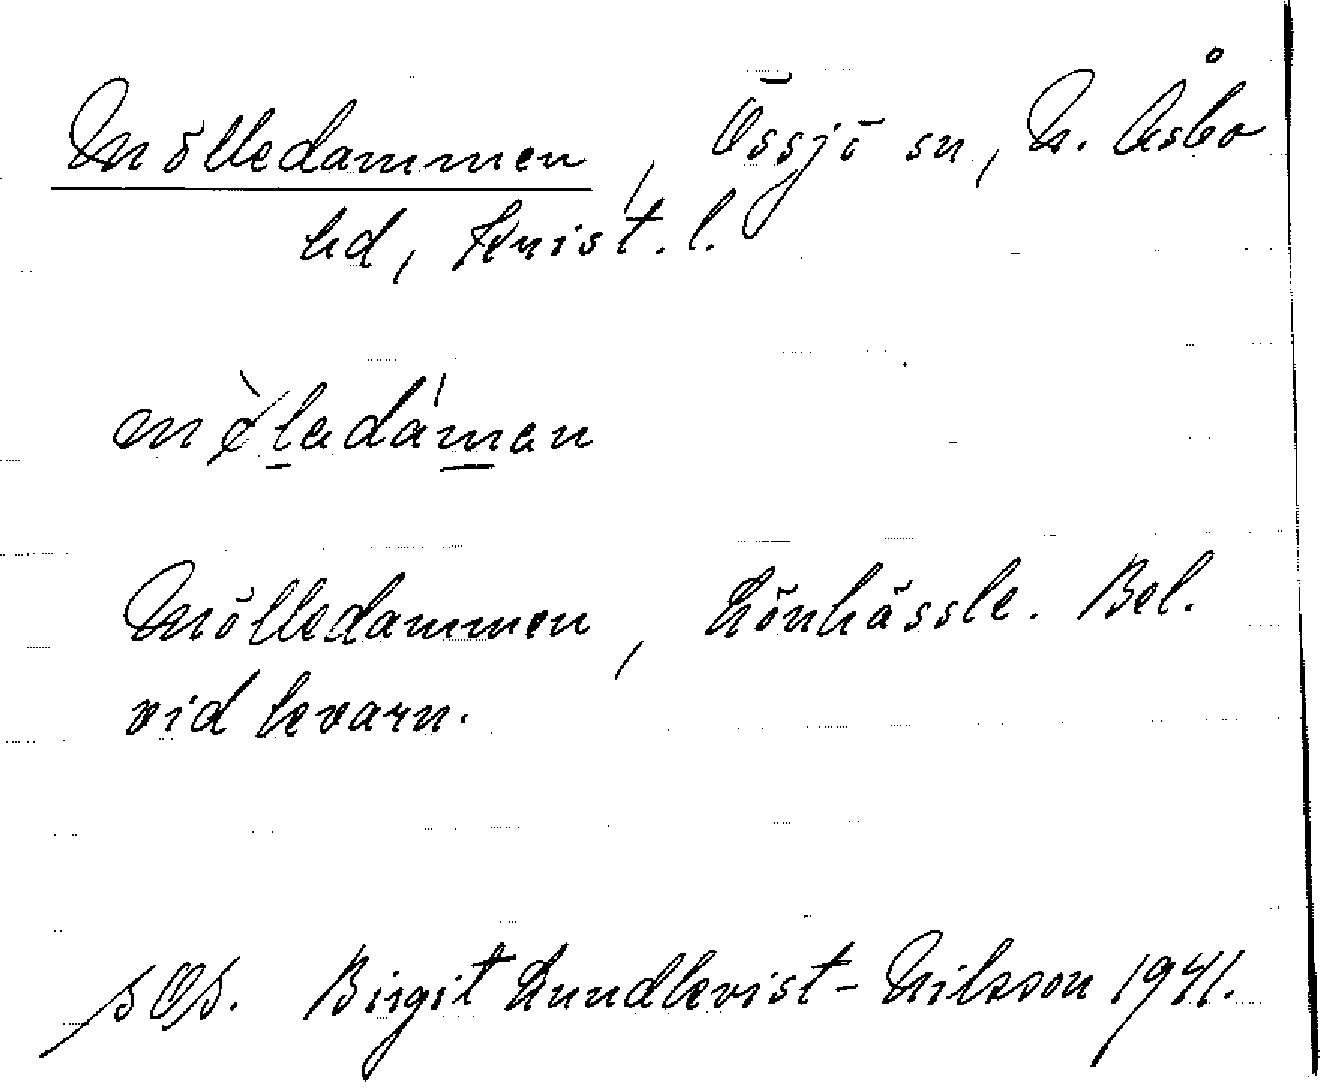 Mölledammen, Össjö sn, N. Åsbo
hd, Krist. l.
mø̀ledám̲en
Mölledammen, Lönhässle. Bel.
vid kvarn.
SOS. Birgit Lundkvist-Nilsson 1941.